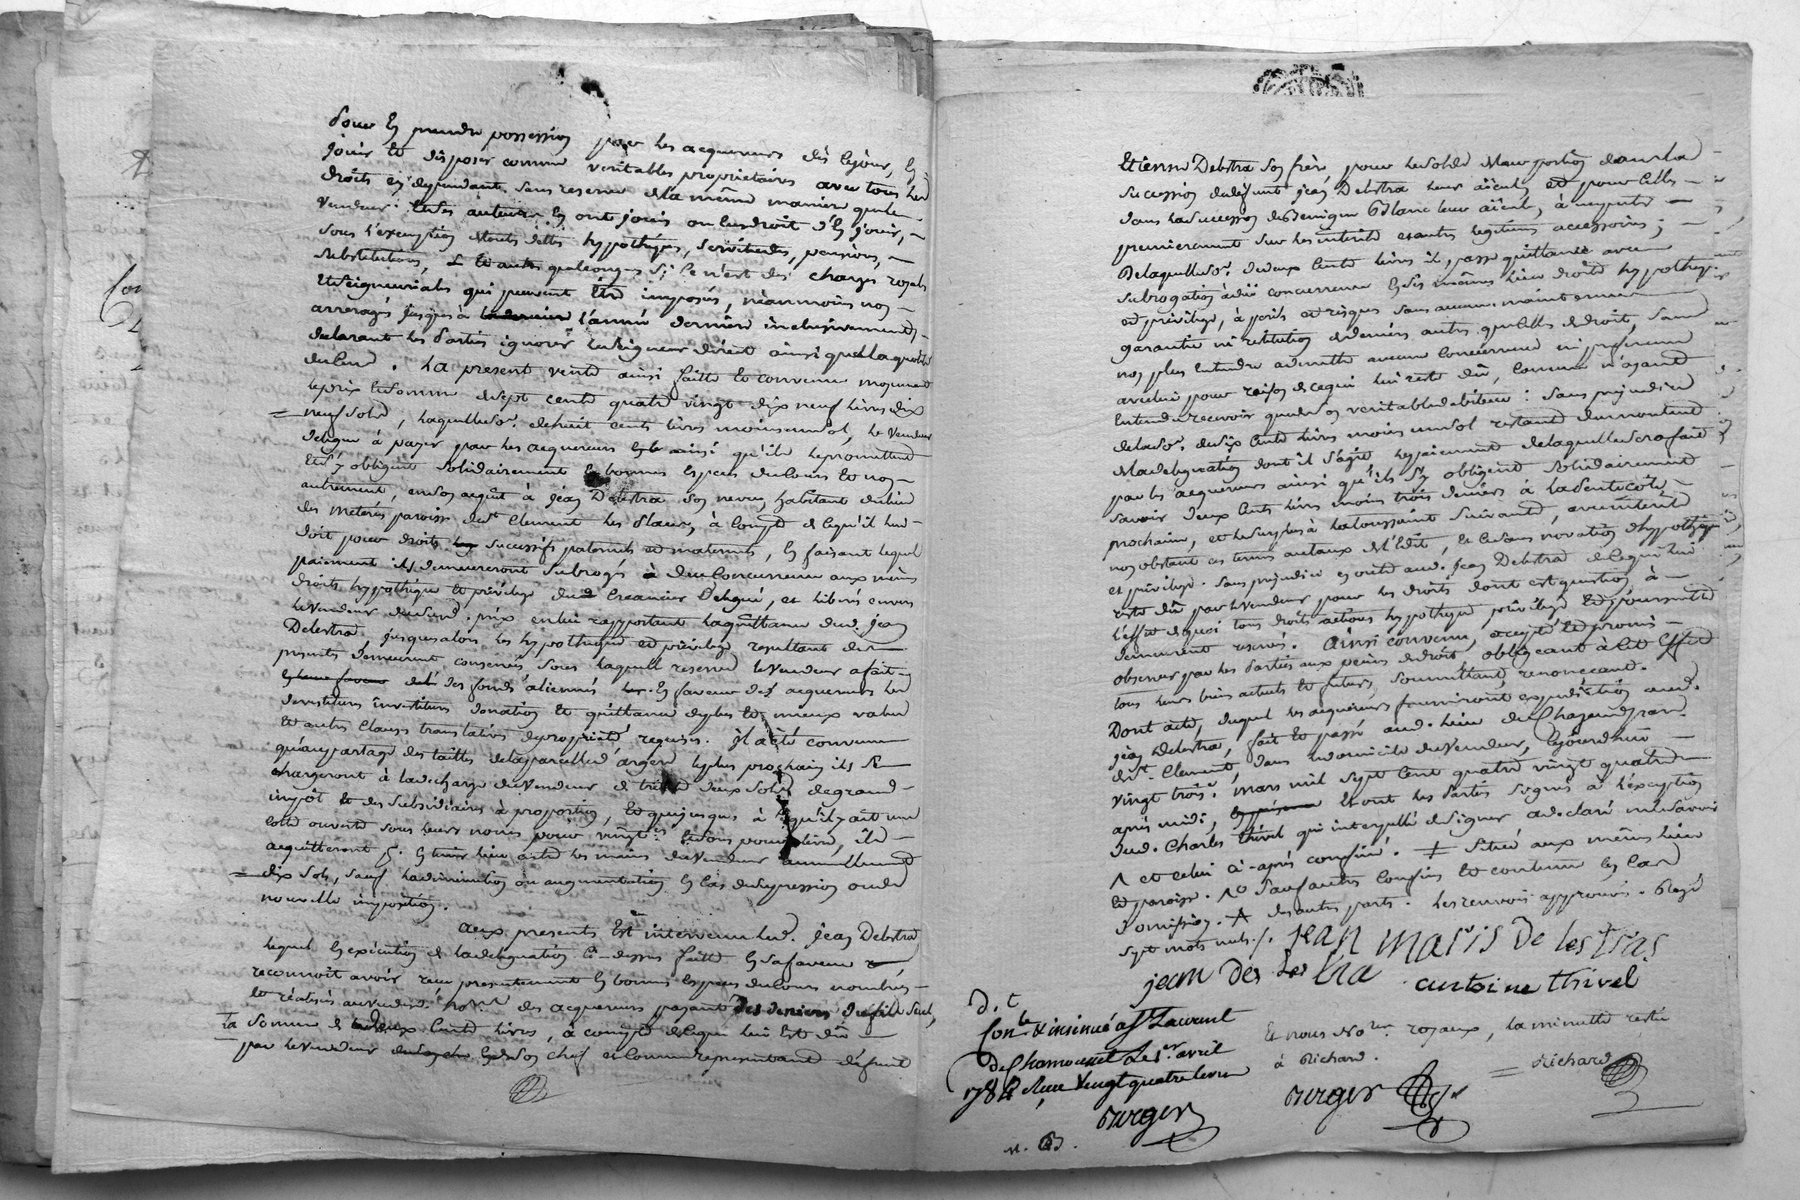 Pour En prendre possession par les acquereurs dès cejour, En
jouir et disposer comme veritables proprietaires avec tous les
droits en dependants, sans reserve de la même maniere que le
vendeur et ses auteurs En ont joui ou eu droit d'En jouir,
sous l'exemption de touts dettes hypothéques, servitudes, pensions,
substitutions, & et autres quelconques si ce n'est des charges royales
et seigneuriales qui peuvent Etre imposés, néanmoins non
arreragés jusques à l'année derniere inclusivement
declarant les Parties ignorer le seigneur direct ainsi que la quotité
du Cens. La present vente ainsi faitte et convenue moyenant
le prix et somme de sept cents quatre vingt dix neuf livres dix
neuf sols, laquelle de huit cents livres moins un sol, le vendeur
delegue à payer par les acquereurs ainsi qu'ils le promettent
et s'y obligent solidairement En bonnes Especes du Cours et non
autrement, en son acquit à jean Delestra son neveu habitant du lieu
des meteres paroisse de st. Clement les Places, à Compte de Ce qu'il lui
doit pour droits successifs paternels et maternels, En faisant lequel
paiement ils demeureront subrogés à due Concurrence aux mêmes
droits hypothéque et privilege dud. Creancier Delegué, et libérés envers
le vendeur dud. prix en lui rapportant la quittance dud. jean
Delestra, jusques alors les hypotheque et privilege resultant des
presents demeurent conservés sous laquelle reserve le vendeur a fait
des fonds aliennés En faveur des acquereurs les
devestiture investiture donation et quittance de plus et mieux value
et autres Clauses translatives de proprieté requises. Il a été convenu
qu'au partage des tailles de la parcelle d'argent le plus prochain ils se
chargeront à la decharge du vendeur de trente deux sols de grand
impôt et des subsidiaires à proportion, et que jusques à ce qu'il y ait une
Cotte ouverte sous leurs noms pour vingt. et sous pour livre, ils
acquitteront lieu entre les mains du vendeur annuellement
dix sols, sauf la diminution ou augmentation En Cas de supression ou de
nouvelle imposition.
aux presents Est intervenu led. jean Delestra
lequel En execution de la delegation Ci-dessus faitte En sa faveur
reconnoit avoir recu presentement En bonnes Especes du Cours nombrés
et réalisés des acquereurs payant des deniers dudit seul,
la somme de deux Cents livres, à compte de Ce qui lui Est dû
par le vendeur de son Chef et Comme representant défunt
Etienne Delestra son frère pour le solde de leur portion dans la
succession du defunt jean Delestra leur aïeul, et pour Celle
dans la succession de Benigne Blanc leur aïeul, à imputer
premierement sur les interets et autres legitimes accessoires;
De laquelle de deux Cents livres il passe quittance avec
subrogation à düe concurrence En ses mêmes lieu droits hypotheque
et privilege, à perils et risques sans aucune maintenue
garantie ni restitution de deniers autres que Celle de droit, sans
non plus Entendre admettre aucune Concurrence ni preference
avec lui pour raison de Ce qui lui reste dû, Comme n'ayant
Entendu recevoir que de son veritable debiteur: sans prejudice
de la de six Cents livres moins un sol restant du montant
de la delegation dont il s'agit le paiement de laquelle sera fait
par les acquereurs ainsi qu'ils s'y obligent solidairement
savoir deux Cents livres moins trois deniers à la Pentecôte
prochaine, et le surplus à la toussaint suivante, avec interêt
non obstant ces termes au taux de l'Edit, et le sans novation d'hypothéque
et privilege. sans prejudice En outre aud. jean Delestra de Ce qui lui
reste dû par le vendeur pour les droits dont est question à
l'effet de quoi tous droits actions hypotheque privilege et poursuitte
demeurent reservés. Ainsi convenu, accepté et promis
observer par les Parties aux peines de droit, obligeant à Cet Effet
tous leurs biens actuels et futurs, soumettant, renonceant.
Dont acte, duquel les acquereurs fourniront expedition aud.
jean Delestra, fait et passé aud. lieu de Chazeaud par.
de st. Clement, dans le domicile du vendeur, Cejourd'hui
vingt trois. mars mil sept Cent quatre vingt quatre
après midi, Et ont les Parties signé à l'exception
dud. Charles thivel qui interpellé de signer a declaré ne le savoir
Λ et celui ci-après confiné. ‡ située aux mêmes lieu
et paroisse. Λ° sauf autres Confins et contenu En Cas
d'omission. A des autres parts. Les renvois approuvés. Rayé
sept mots nuls./. jean maris De les tras
jean des Les tra antoine thivel
Et nous No.res royaux, la minutte restée
à Richard.
Richard
Berger
D. C
Con.lé & insinué à St Laurent
De Chamousset Le 1.er avril
1784 Reçu Vingt quatre livres
Berger